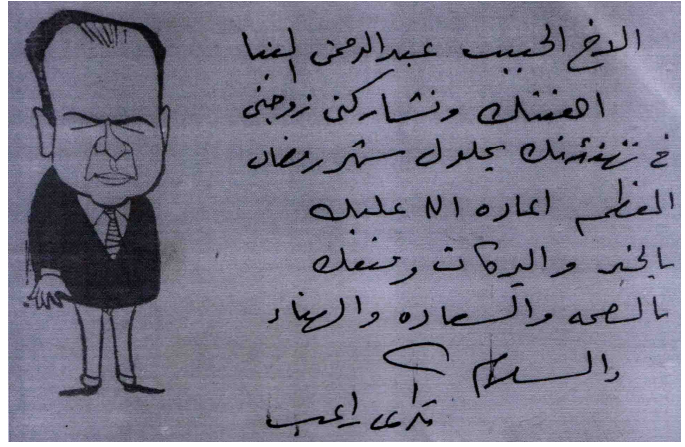 الاخ الحبيب عبدالرحمن البنا
اهنئك وتشاركنى زوجتى
فى تهنئتك بحلول شهر رمضان
المعظم اعاده الله عليك
بالخير والبركات ومتعك
بالصحه والسعاده والهناء
والسلام
راعب